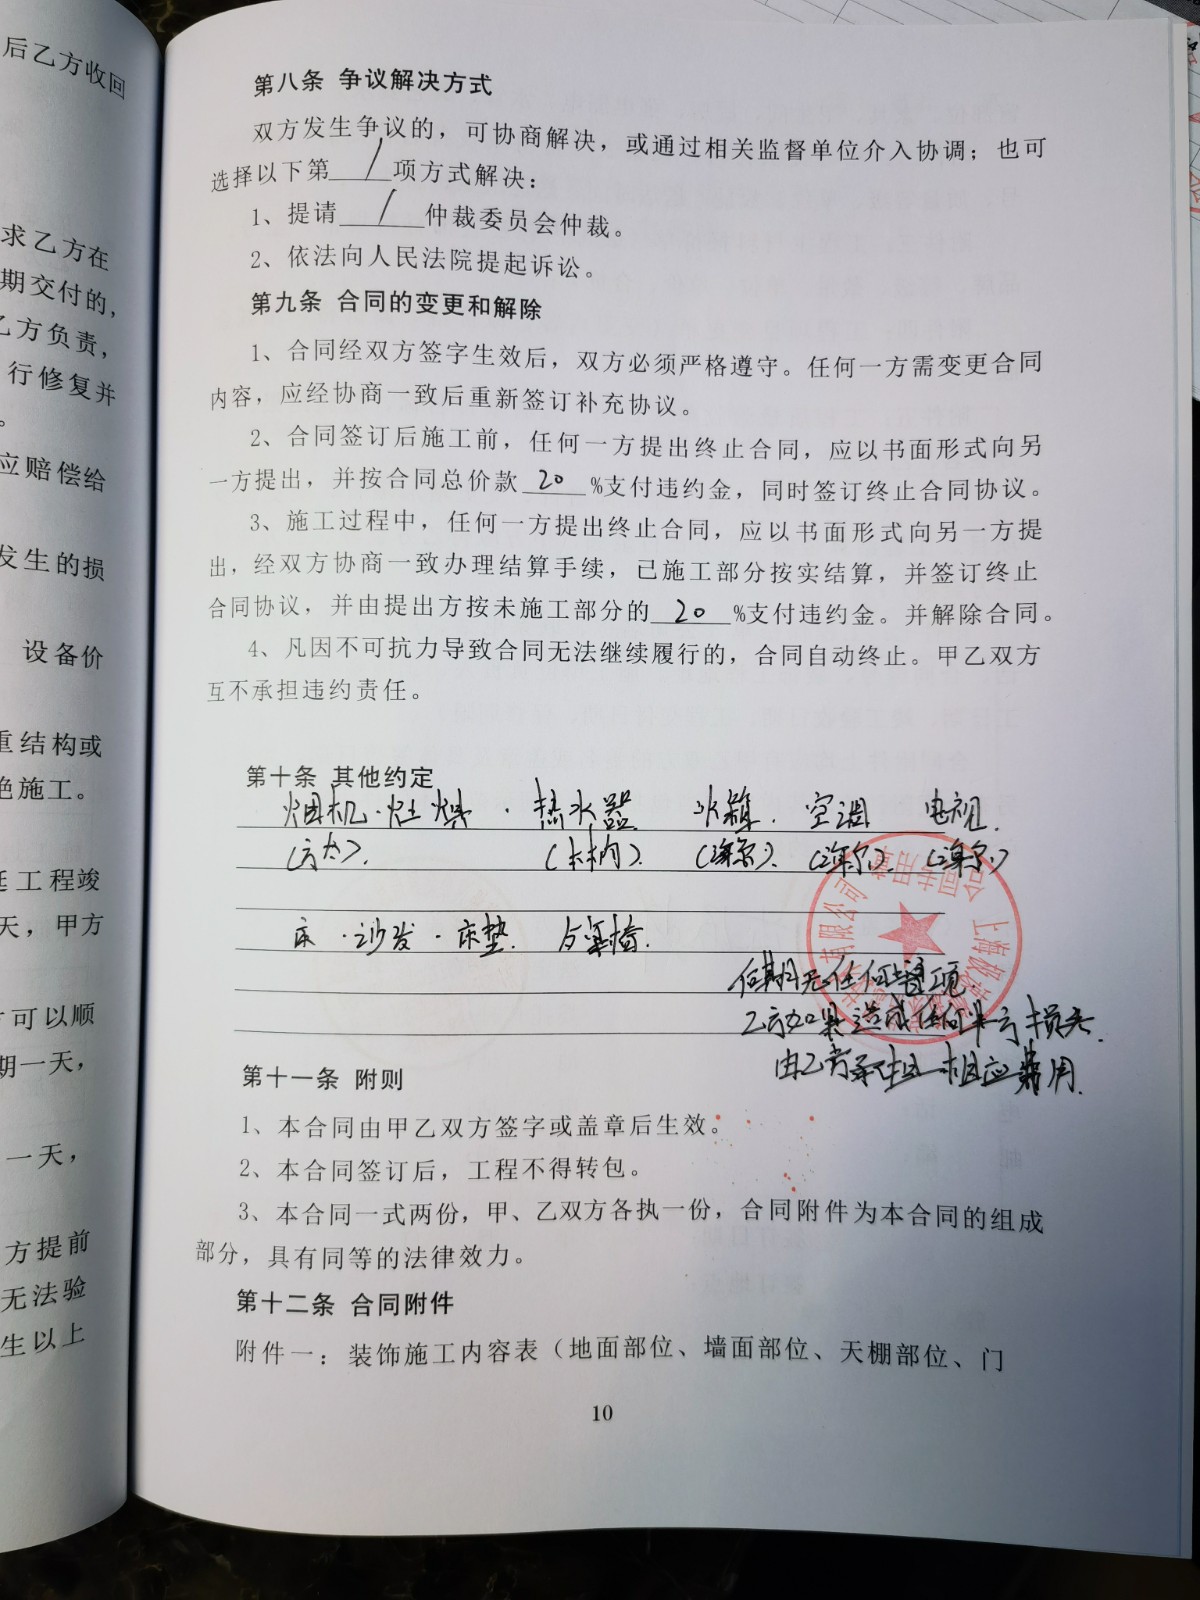 后乙方收回
求乙方在
期交付的，
乙方负责，
行修复并
。
应赔偿给
发生的损
设备价
重结构或
绝施工。
延工程竣
天，甲方
方可以顺
期一天，
一天，
方提前
无法验
生以上
第八条 争议解决方式
双方发生争议的，可协商解决，或通过相关监督单位介入协调；也可
选择以下第 / 项方式解决：
1、提请 / 仲裁委员会仲裁。
2、依法向人民法院提起诉讼。
第九条 合同的变更和解除
1、合同经双方签字生效后，双方必须严格遵守。任何一方需变更合同
内容，应经协商一致后重新签订补充协议。
2、合同签订后施工前，任何一方提出终止合同，应以书面形式向另
一方提出，并按合同总价款 20 %支付违约金，同时签订终止合同协议。
3、施工过程中，任何一方提出终止合同，应以书面形式向另一方提
出，经双方协商一致办理结算手续，已施工部分按实结算，并签订终止
合同协议，并由提出方按未施工部分的 20 %支付违约金。并解除合同。
4、凡因不可抗力导致合同无法继续履行的，合同自动终止。甲乙双方
互不承担违约责任。
第十条 其他约定
烟机·灶 · 热水器 冰箱. 空调 电视.
（方太）. （ ）. （海尔）. （海尔）. （海尔）
床·沙发·床垫.
期无任何增项.
乙方如果造成任何 方损失.
由乙方承担相应费用.
上海 有限公司
合同专用章
第十一条 附则
1、本合同由甲乙双方签字或盖章后生效。
2、本合同签订后，工程不得转包。
3、本合同一式两份，甲、乙双方各执一份，合同附件为本合同的组成
部分，具有同等的法律效力。
第十二条 合同附件
附件一：装饰施工内容表（地面部位、墙面部位、天棚部位、门
10